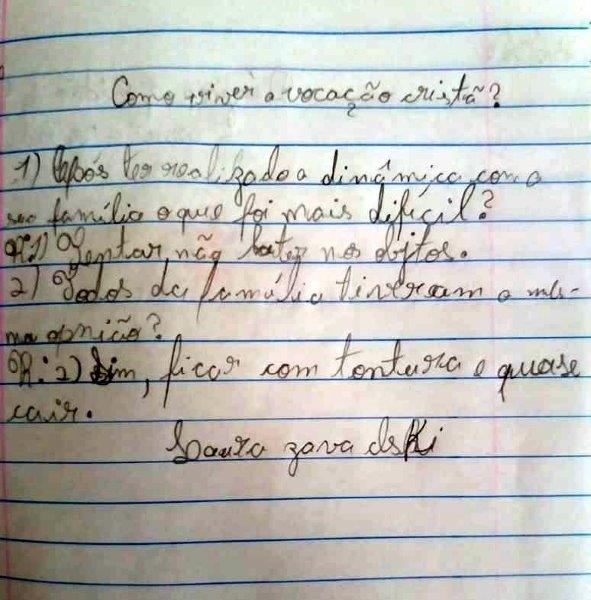 Como viver a vocação cristã?
1) Após ter realizado a dinâmica com a
sua família o que foi mais difícil?
R:1) Tentar não bater nos objtos.
2) Todos da família tiveram a mes-
ma opnião?
R:2) Sim, ficar com tontura e quase
cair.
Laura zavadski